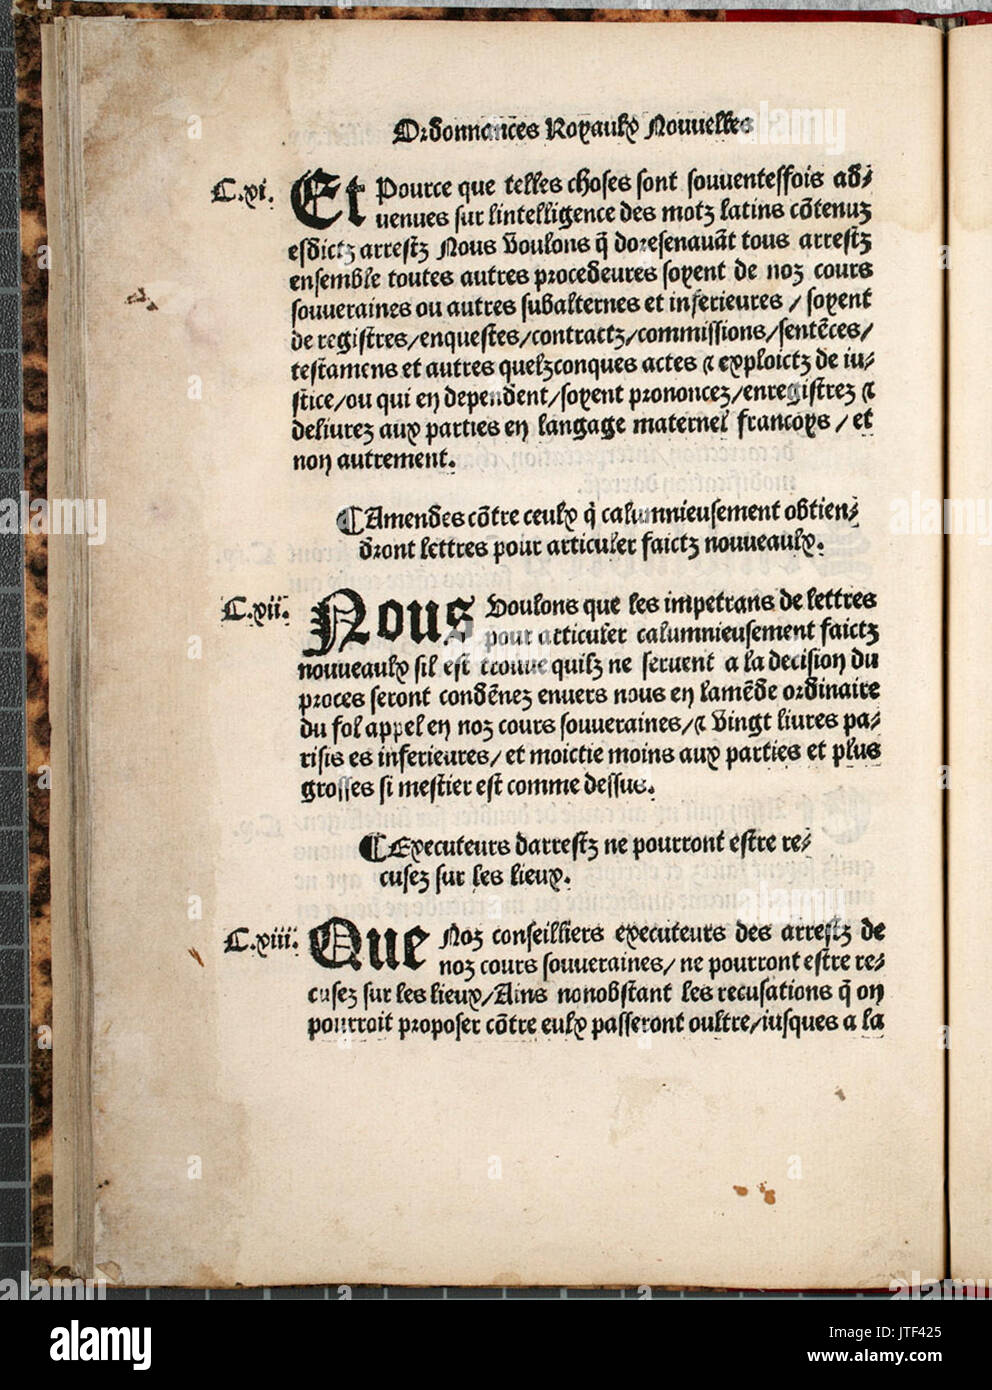 Ordonnances Royaulx Nouuelles
C.xi. Et Pource que telles choses sont souuenteffois ad-
uenues sur lintelligence des motz latins cõtenuz
esdictz arrestz Nous Voulons q̃ doresenauãt tous arrestz
ensemble toutes autres procedeures soyent de noz cours
souueraines ou autres subalternes et inferieures / soyent
de registres/enquestes/contractz/commissions/sentẽces/
testamens et autres quelzconques actes & exploictz de iu-
stice/ou qui en dependent/soyent prononcez/enregistrez &
deliurez aux parties en langage maternel francoys / et
non autrement.
¶Amendes cõtre ceulx q̃ calumnieusement obtien-
dront lettres pour articuler faictz nouueaulx.
C.xii. Nous Voulons que les impetrans de lettres
pour articuler calumnieusement faictz
nouueaulx sil est trouue quilz ne seruent a la decision du
proces seront condẽnez enuers nous en lamẽde ordinaire
du fol appel en noz cours souueraines/& Vingt liures pa-
risis es inferieures/et moictie moins aux parties et plus
grosses si mestier est comme dessus.
¶Executeurs darrestz ne pourront estre re-
cusez sur les lieux.
C.xiii. Que Noz conseilliers executeurs des arrestz de
noz cours souueraines/ne pourront estre re-
cusez sur les lieux/Ains nonobstant les recusations q̃ on
pourroit proposer cõtre eulx passeront oultre/iusques a la
alamy
Image ID: JTF425
www.alamy.com